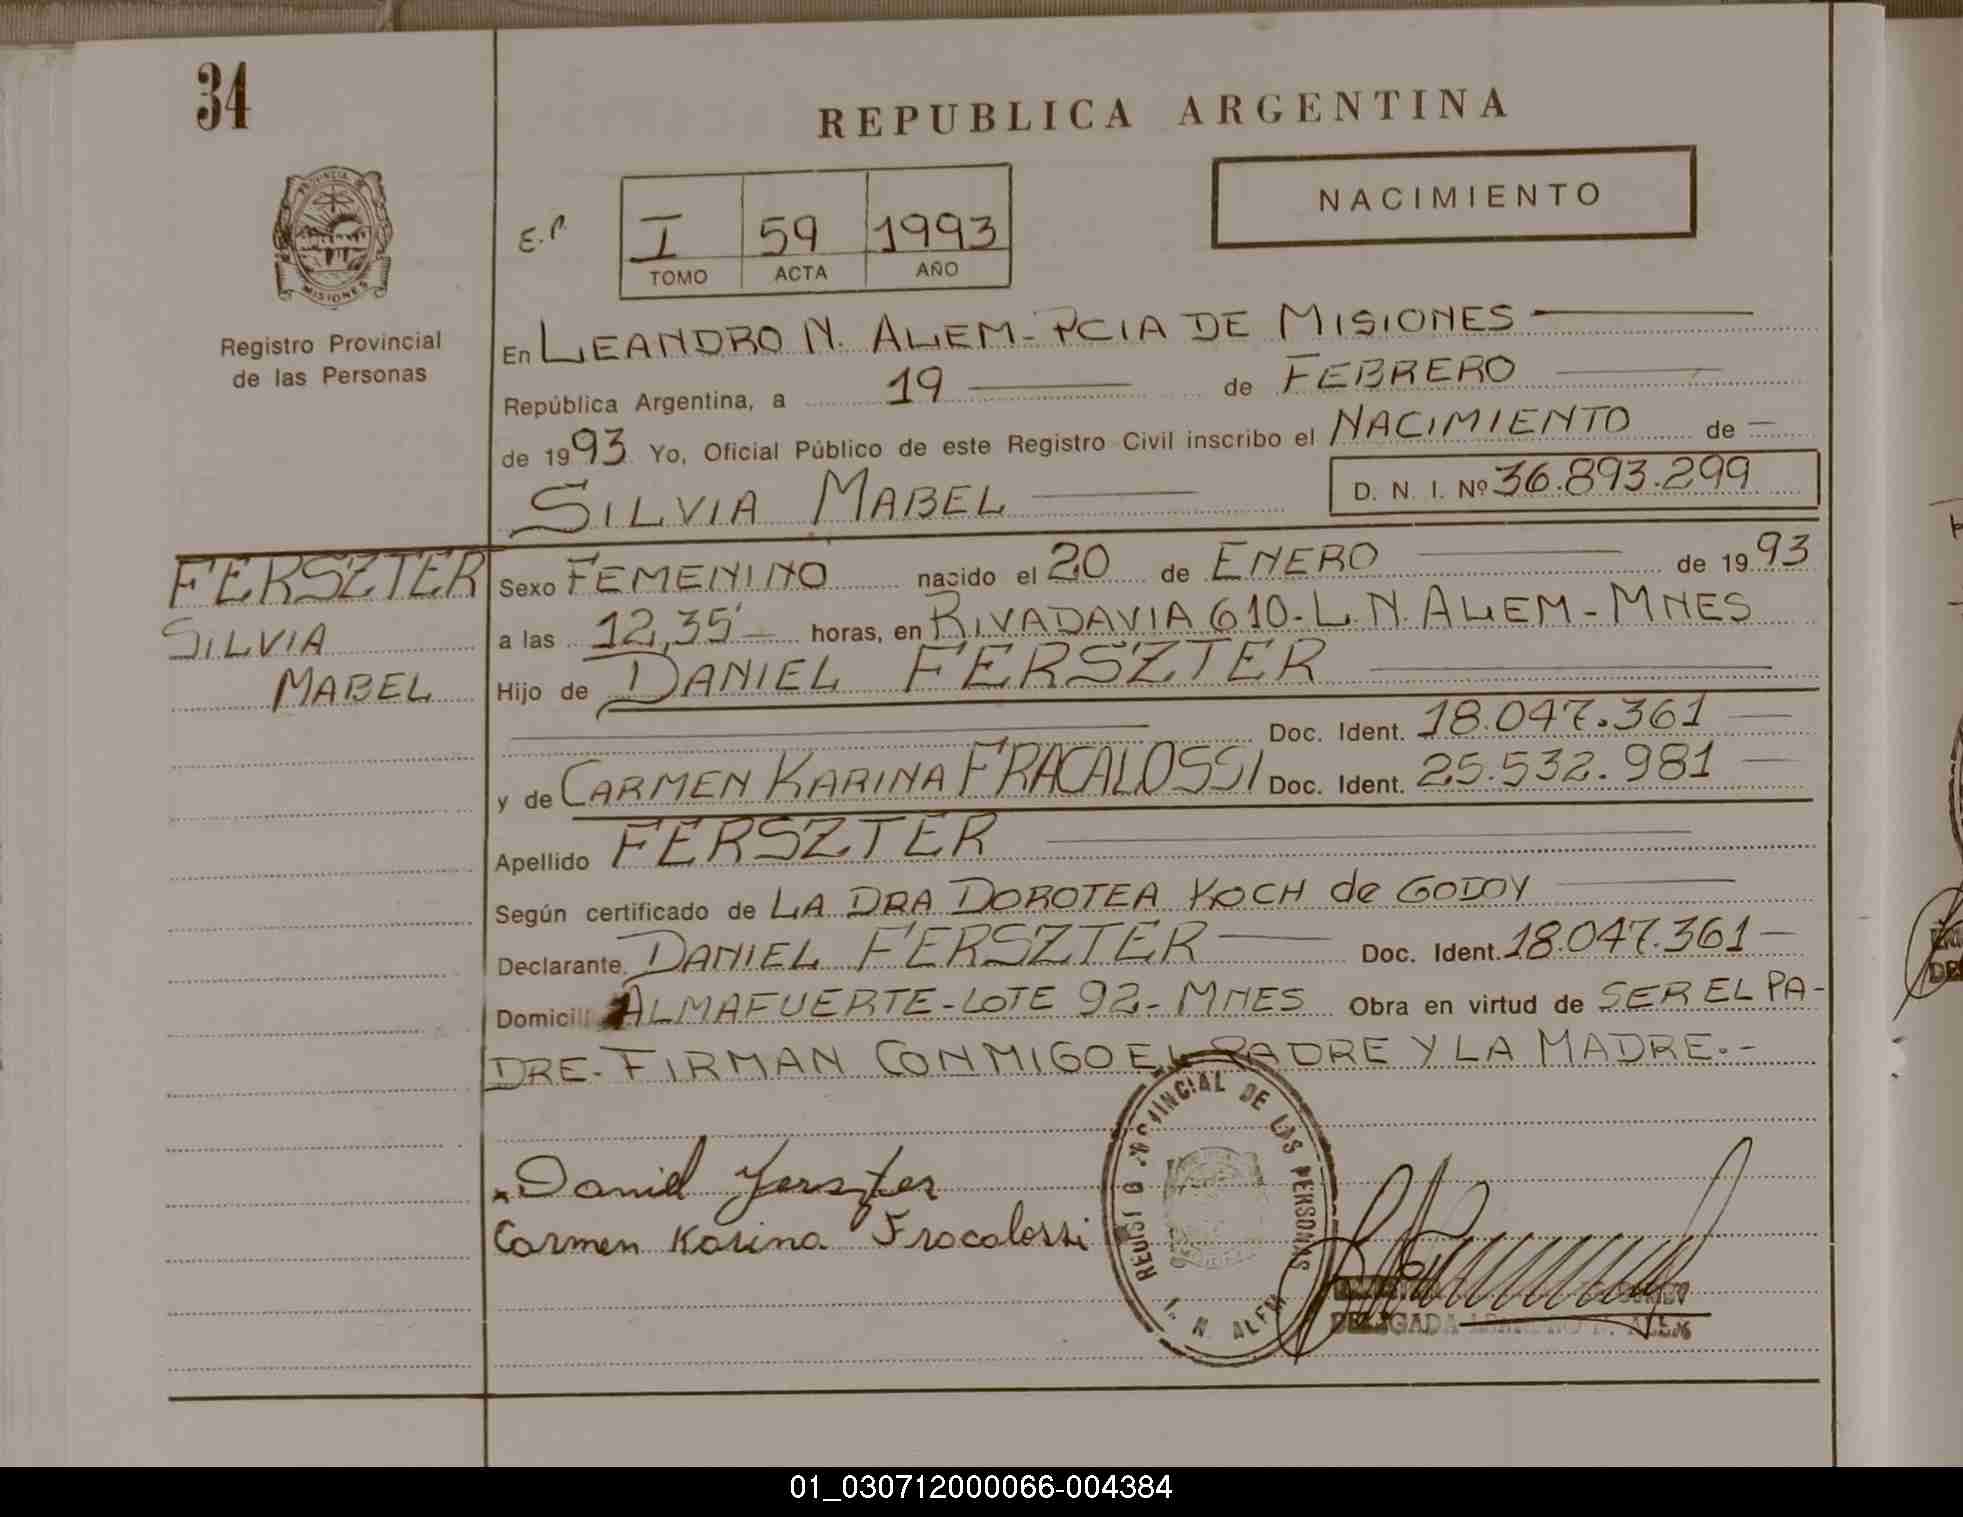 34
REPUBLICA ARGENTINA
PROVINCIA DE
MISIONES
Registro Provincial
de las Personas
NACIMIENTO
I 59 1993
TOMO ACTA AÑO
En LEANDRO N. ALEM-PCIA DE MISIONES
República Argentina, a 19 de FEBRERO
de 1993 Yo, Oficial Público de este Registro Civil inscribo el NACIMIENTO de
SILVIA MABEL D. N. I. Nº 36.893.299
FERSZTER
SILVIA
MABEL
Sexo FEMENINO nacido el 20 de ENERO de 1993
a las 12,35 horas, en RIVADAVIA 610-L.N. ALEM-MNES
Hijo de DANIEL FERSZTER
Doc. Ident. 18.047.361
y de CARMEN KARINA FRACALOSSI Doc. Ident. 25.532.981
Apellido FERSZTER
Según certificado de LA DRA DOROTEA KOCH de GODOY
Declarante DANIEL FERSZTER Doc. Ident. 18.047.361
Domicili ALMAFUERTE-LOTE 92-MNES Obra en virtud de SER EL PA-
DRE-FIRMAN CONMIGO EL PADRE Y LA MADRE.-
Daniel Ferszter
Carmen Karina Fracalossi
PROVINCIAL DE LAS PERSONAS
L. N. ALEM
DELEGADA
01_030712000066-004384